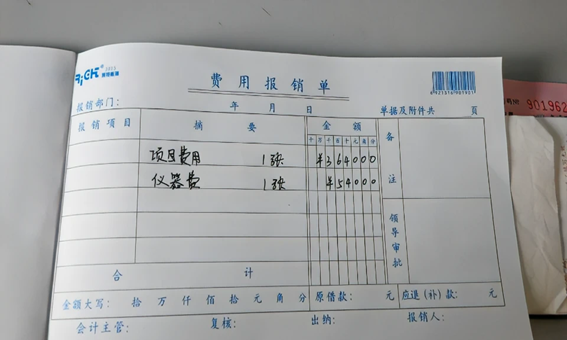 RiCH®
费用报销单
报销部门： 年 月 日 单据及附件共 页
报销项目 摘要 金额 备注
千 百 十 万 千 百 十 元 角 分
项目费用 1张 ¥364000
仪器费 1张 ¥54000
领导审批
合计
金额大写： 拾 万 仟 佰 拾 元 角 分 原借款： 元 应退（补）款： 元
会计主管： 复核： 出纳： 报销人：
901962